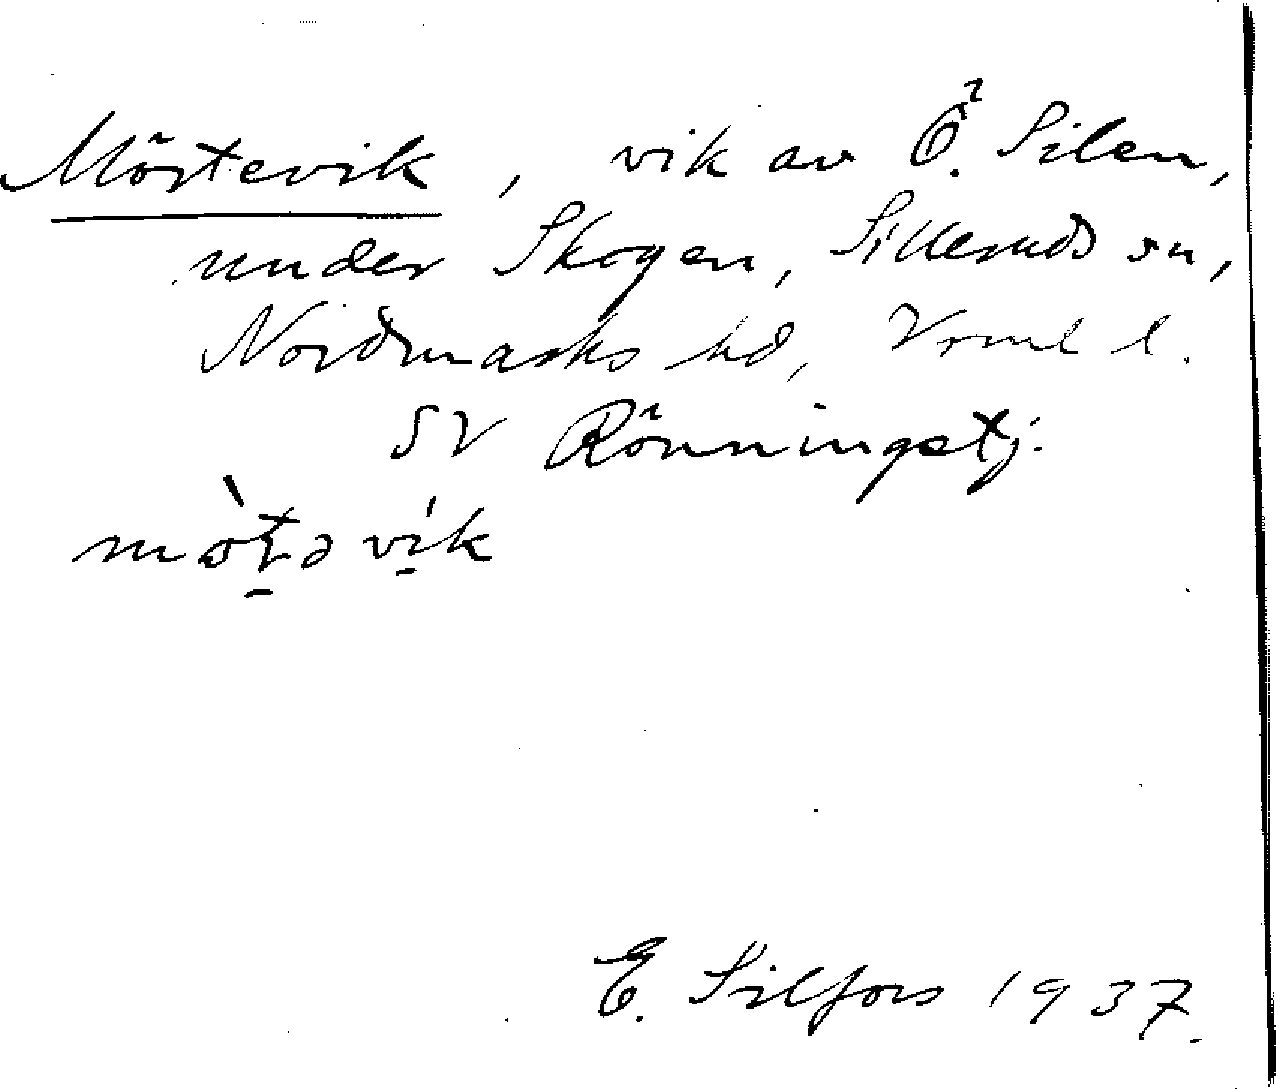 Mörtevik, vik av Ö. Silen,
under Skogen, Sillerud sn,
Nordmarks hd, Vrml l.
SV Rönningstj.
E. Silfors 1937.